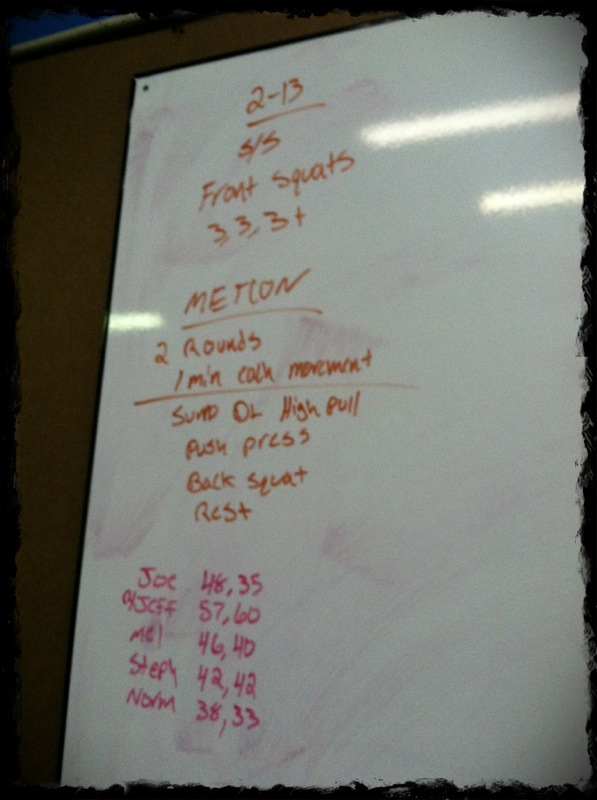 2-13
S/S
Front Squats
3, 3, 3+
METCON
2 Rounds
1 min each movement
Sumo DL High pull
Push press
Back squat
Rest
Joe 48, 35
JEFF 57, 60
Mel 46, 40
Steph 42, 42
Norm 38, 33